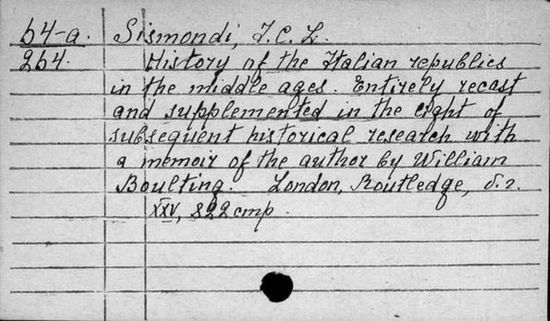 64-a. Sismondi, J.C.L.
264. History of the Italian republics
in the middle ages. Entirely recast
and supplemented in the light of
subsequent historical research with
a memoir of the author by William
Boulting. London, Routledge, s.a.
XXV, 822 стр.